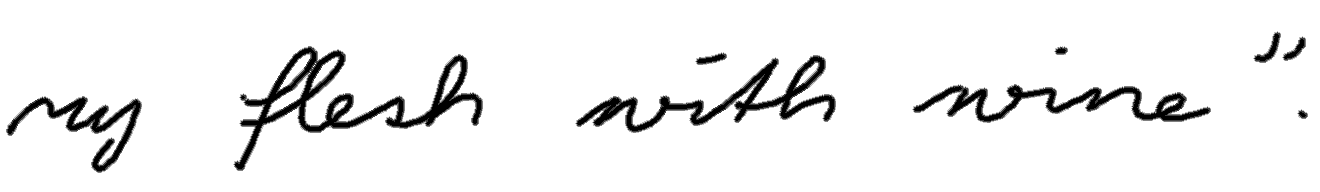 my flesh with wine".